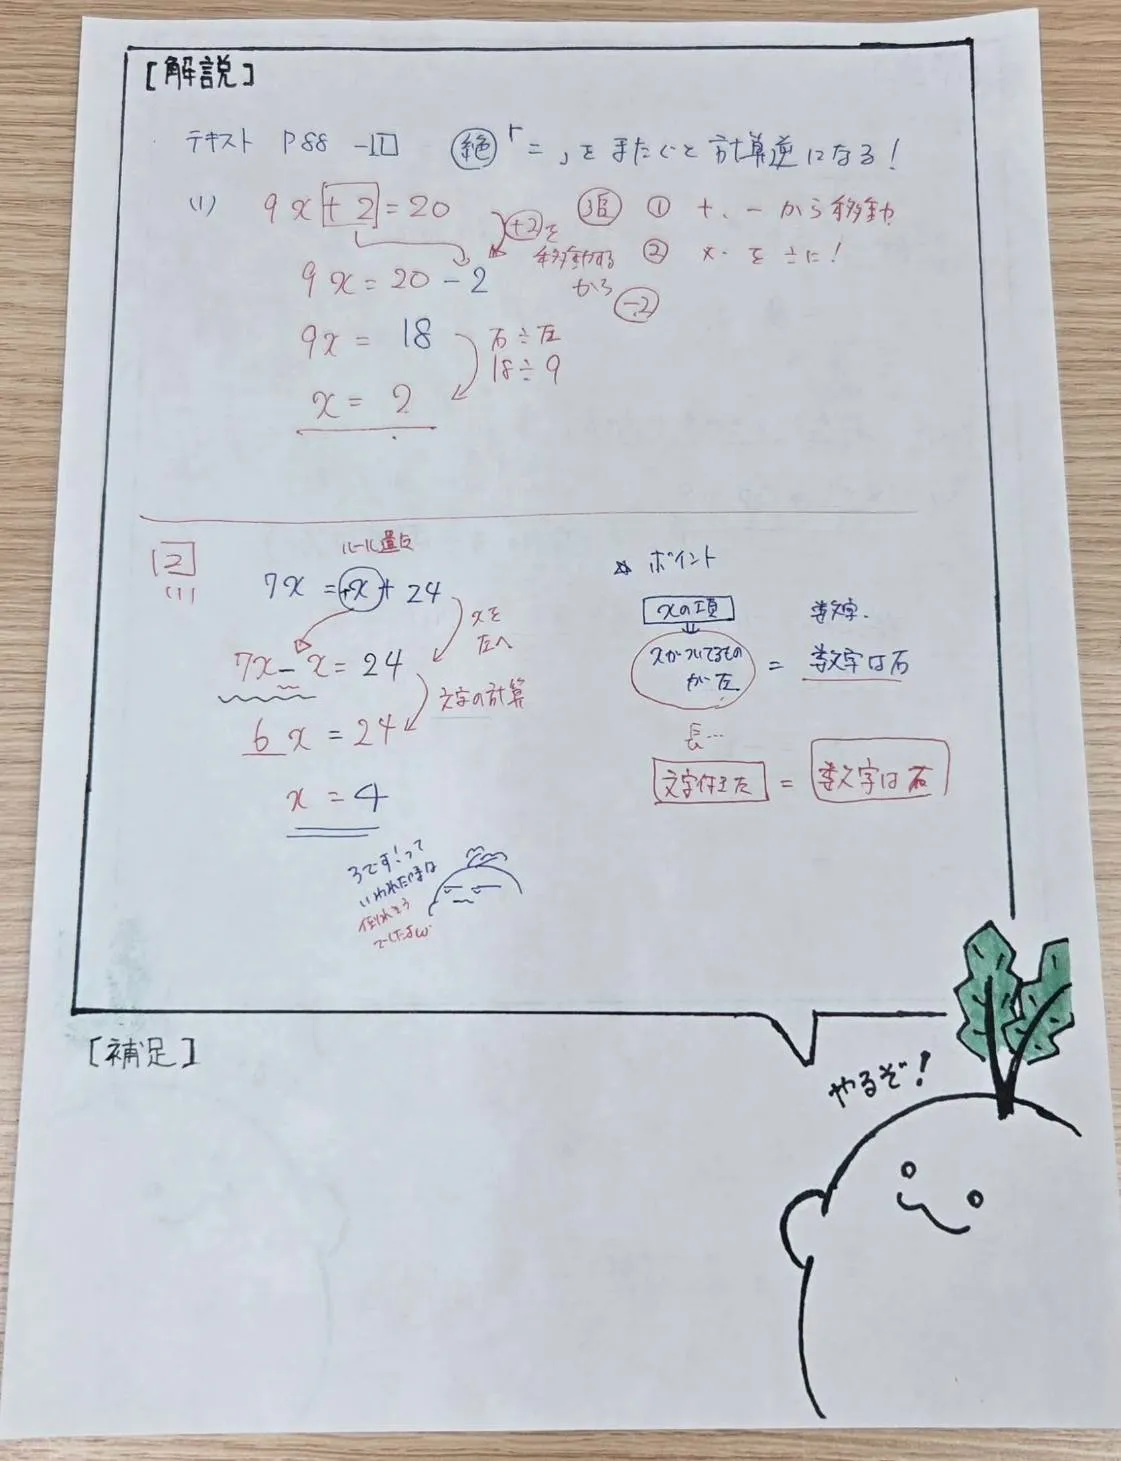 [解説]
テキスト P88 -1 絶「=」をまたぐと計算逆になる!
(1) 9x+2=20
+2を移動するから -2
① +、-から移動
② ×・を÷に!
9x=20-2
9x=18
右÷左
18÷9
x=2
2
(1)
ルール違反
7x=+x+24
xを左へ
7x-x=24
文字の計算
6x=24
x=4
☆ポイント
xの項
xがついてるものが左 = 数字は右
文字付き左 = 数字は右
3です!って
いわれた時は
倒れそう
でしたよw
[補足]
やるぞ!